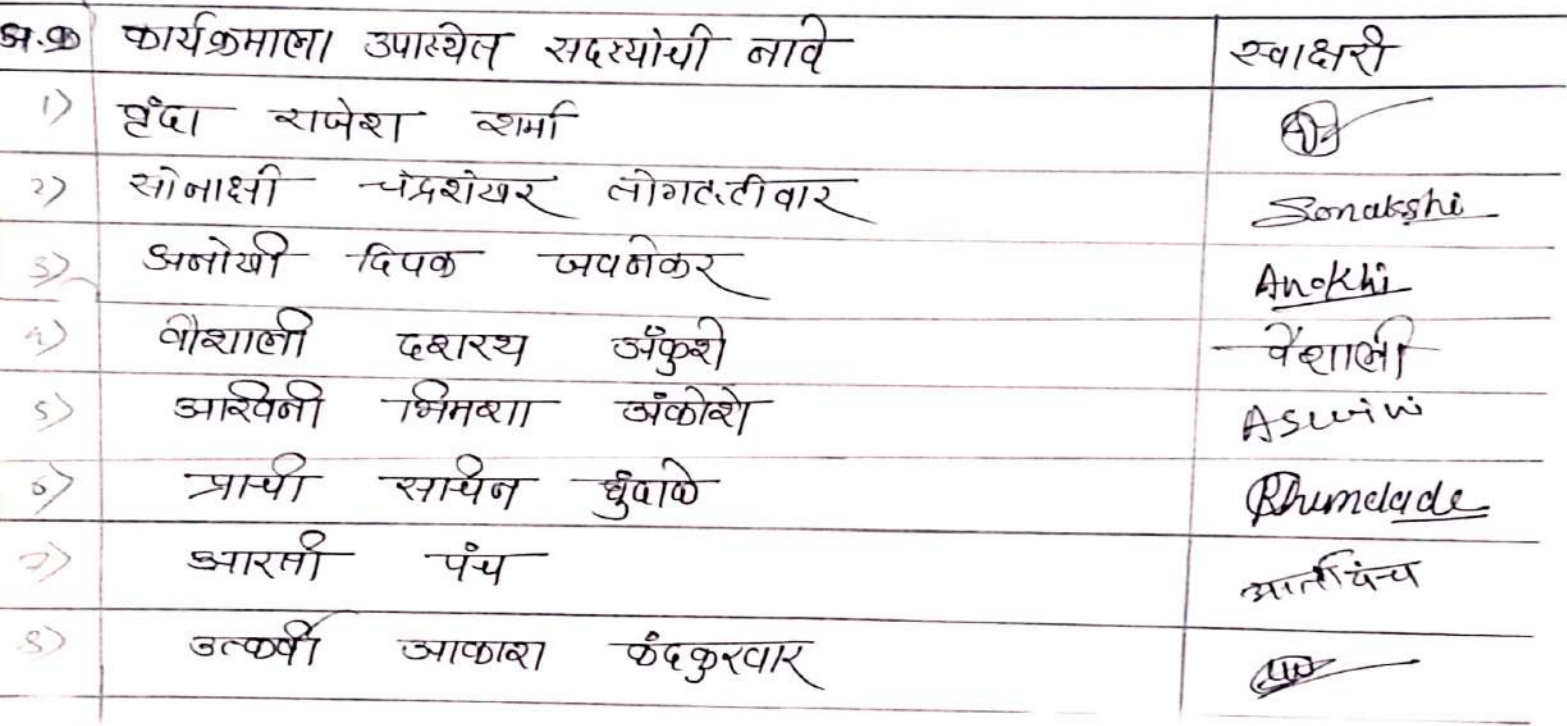 अ.क्र कार्यक्रमाला उपास्थेत सदस्यांची नावे स्वाक्षरी
1) वृंदा राजेश शर्मा
2) सोनाक्षी चंद्रशेखर लोगटलीवार Sonakshi
3) अनोखी दिपक जवनेकर Anokhi
4) वैशाली दशरथ अंकुशे वैशाली
5) आश्विनी भिमशा अंकोशे Aswini
6) प्राची सचिन धुंदाळे Dhumdade
7) आरती पंच आरती पंच
8) उत्कर्षा आकाश कंदकुरवार